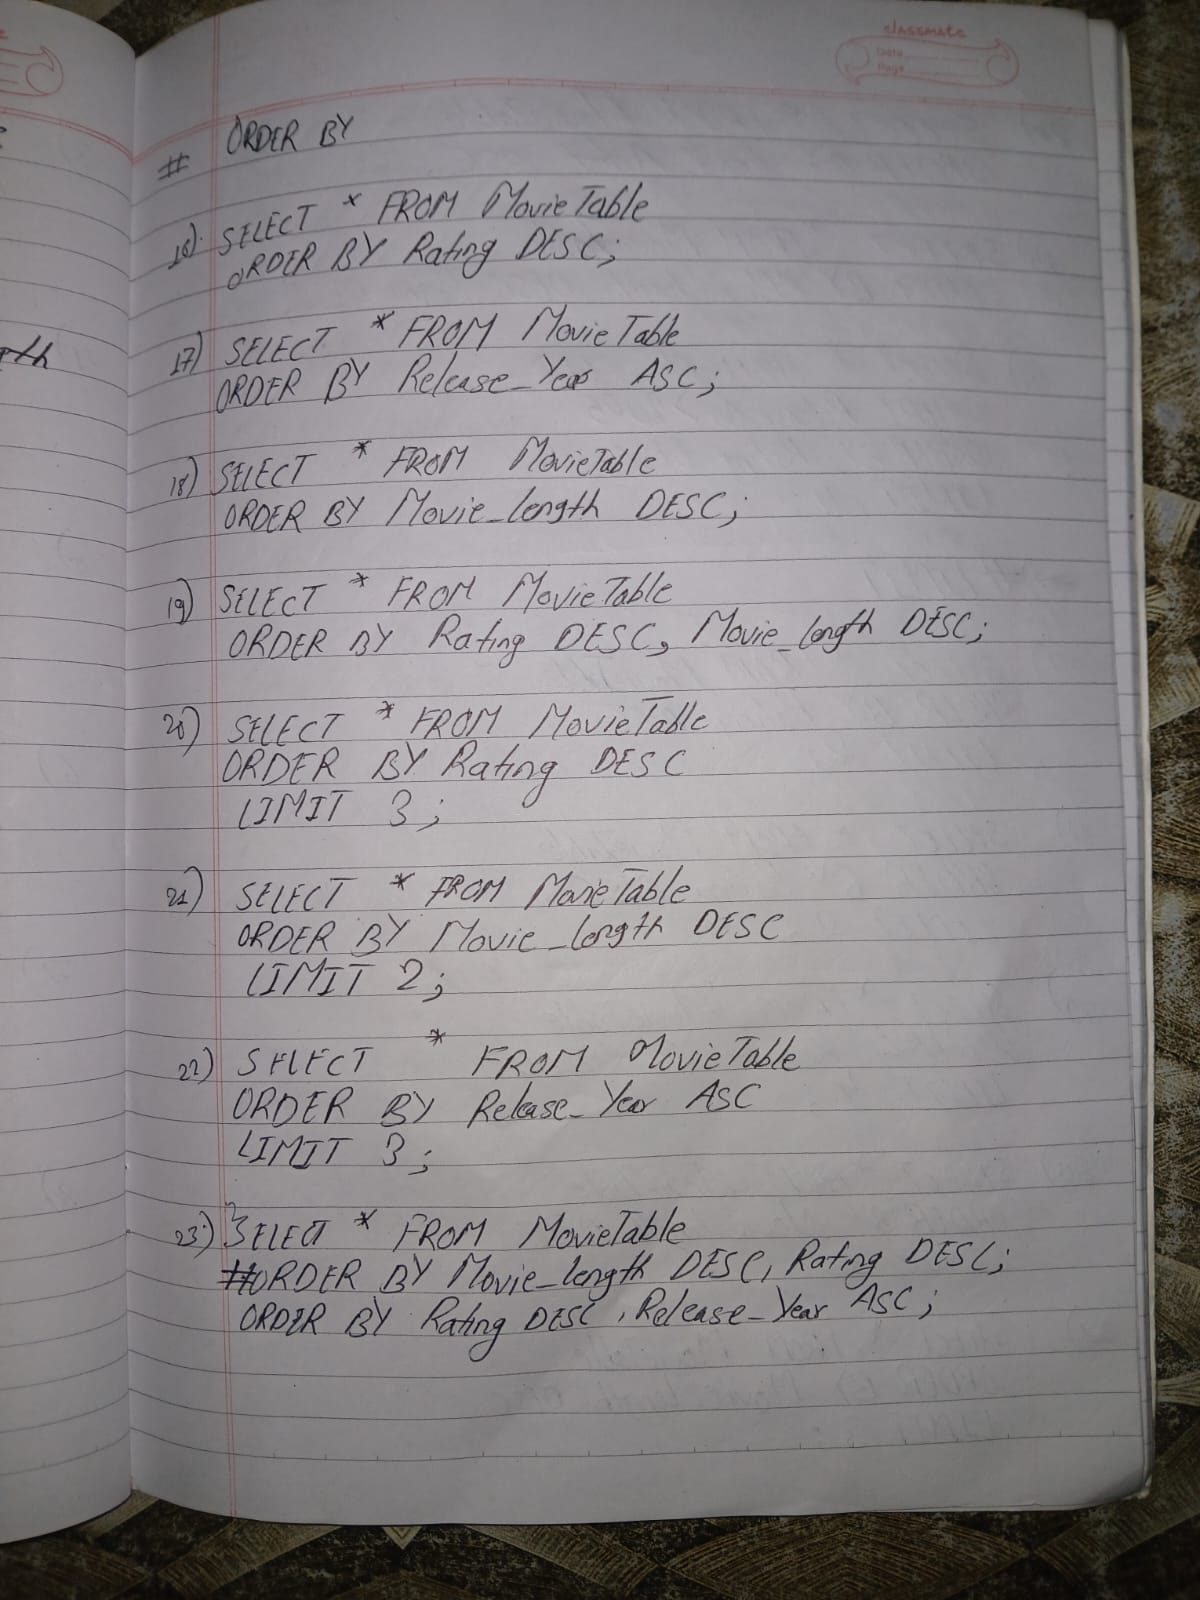 classmate
Date
Page
# ORDER BY
16) SELECT * FROM MovieTable
ORDER BY Rating DESC;
17) SELECT * FROM MovieTable
ORDER BY Release_Year ASC;
18) SELECT * FROM MovieTable
ORDER BY Movie_length DESC;
19) SELECT * FROM MovieTable
ORDER BY Rating DESC, Movie_length DESC;
20) SELECT * FROM MovieTable
ORDER BY Rating DESC
LIMIT 3;
21) SELECT * FROM MovieTable
ORDER BY Movie_length DESC
LIMIT 2;
22) SELECT * FROM MovieTable
ORDER BY Release_Year ASC
LIMIT 3;
23) SELECT * FROM MovieTable
#ORDER BY Movie_length DESC, Rating DESC;
ORDER BY Rating DESC, Release_Year ASC;